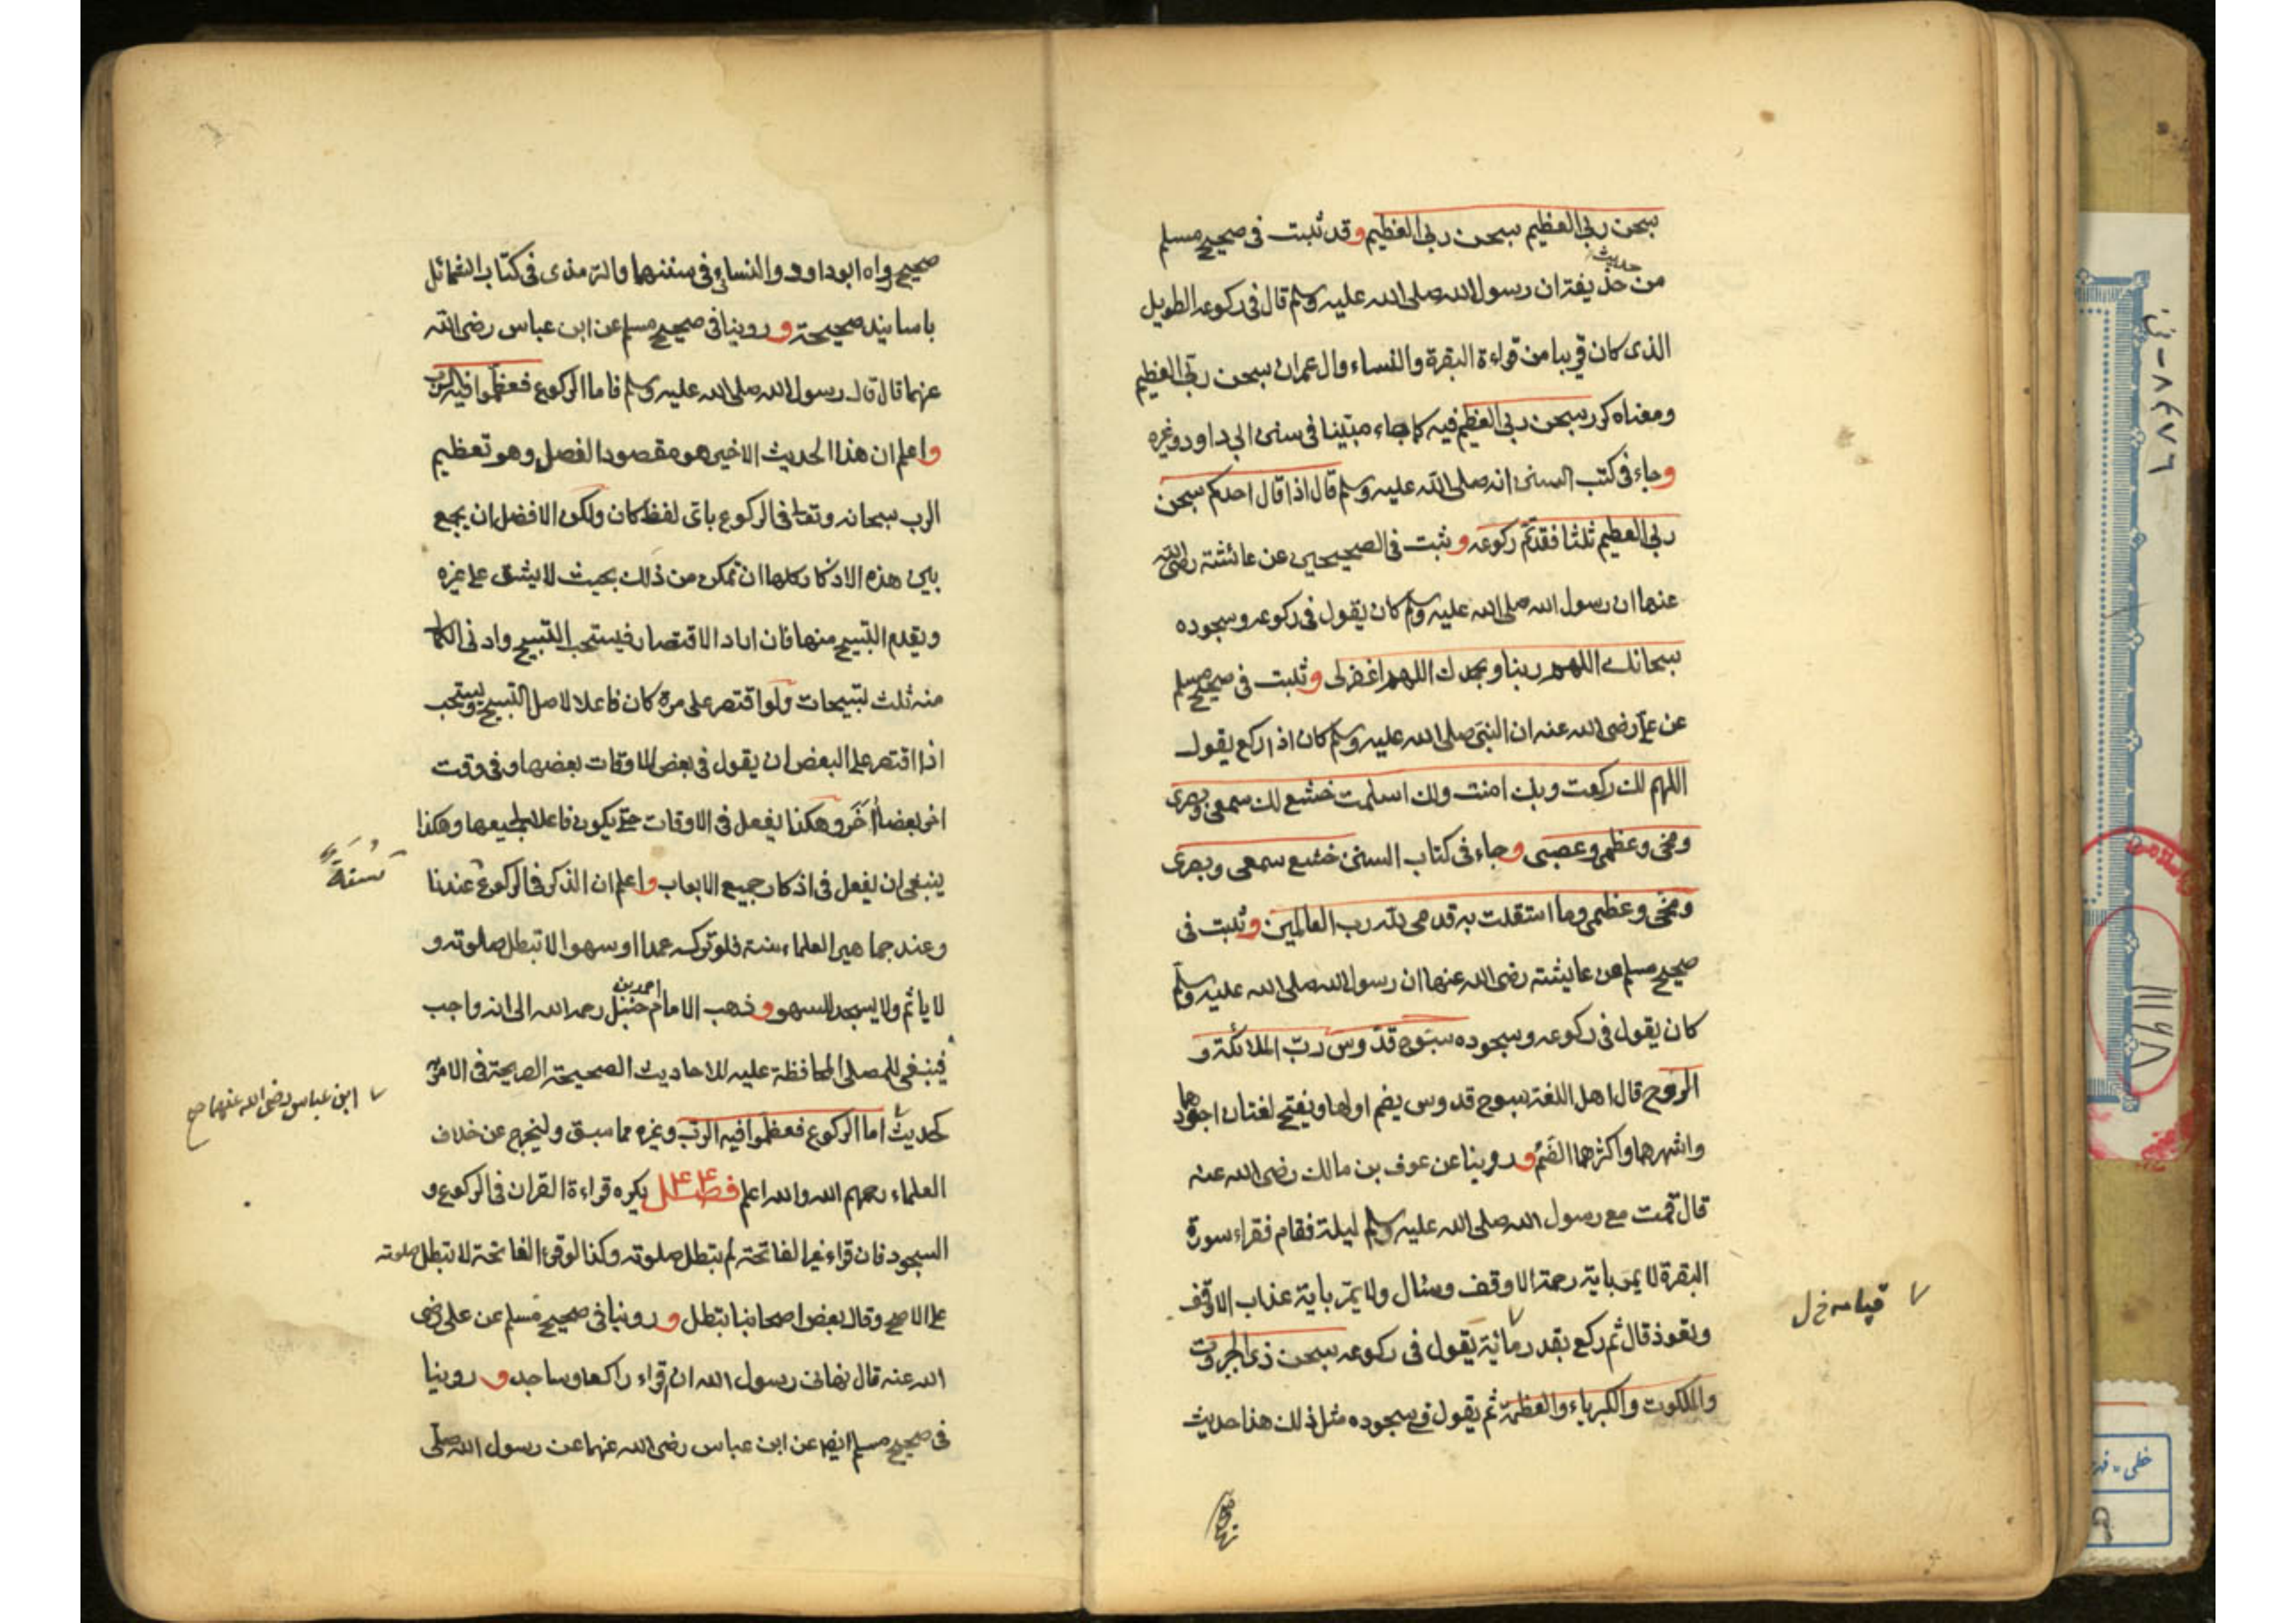 سبحن ربى العظيم سبحن ربى العظيم وقد ثبت فى صحيح مسلم
حديث
من حذيفة ان رسول الله صلى الله عليه وسلم قال فى ركوعه الطويل
الذى كان قريبا من قراءة البقرة والنساء وال عمران سبحن ربى العظيم
ومعناه كرر سبحن ربى العظيم فيه كما جاء مبينا فى سنن ابى داود وغيره
وجاء فى كتب السنن انه صلى الله عليه وسلم قال اذا قال احدكم سبحن
ربى العظيم ثلثا فقد تم ركوعه وثبت فى الصحيحين عن عائشة رضى الله
عنها ان رسول الله صلى الله عليه وسلم كان يقول فى ركوعه وسجوده
سبحانك اللهم ربنا وبحمدك اللهم اغفر لى وثبت فى صحيح مسلم
عن على رضى الله عنه ان النبى صلى الله عليه وسلم كان اذا ركع يقول
اللهم لك ركعت وبك امنت ولك اسلمت خشع لك سمعى وبصرى
ومخى وعظمى وعصبى وجاء فى كتاب السنن خشع سمعى وبصرى
ومخى وعظمى وما استقلت به قدمى لله رب العالمين وثبت فى
صحيح مسلم عن عايشة رضى الله عنها ان رسول الله صلى الله عليه وسلم
كان يقول فى ركوعه وسجوده سبوح قدوس رب الملائكة و
الروح قال اهل اللغة سبوح قدوس يضم اولها ويفتح لغتان اجودهما
واشهرهما واكثرهما الضم وروينا عن عوف بن مالك رضى الله عنه
قال قمت مع رسول الله صلى الله عليه وسلم ليلة فقام فقراء سورة
البقرة لا يمر باية رحمة الا وقف وسئال ولا يمر باية عذاب الا وقف
وتعوذ قال ثم ركع بقدر يقول فى ركوعه سبحن ذى الجبروت
قيامه خ ل
والملكوت والكبرياء والعظمة ثم يقول فى سجوده مثل ذلك هذا حديث
صحيح
صحيح رواه ابو داود والنسائى فى سننهما والترمذى فى كتاب الشمائل
باسانيد صحيحة وروينا فى صحيح مسلم عن ابن عباس رضى الله
عنهما قال قال رسول الله صلى الله عليه وسلم فاما الركوع فعظموا فيه الرب
واعلم ان هذا الحديث الاخير هو مقصود الفصل وهو تعظيم
الرب سبحانه وتعالى فى الركوع باى لفظ كان ولكن الافضل ان يجمع
بين هذه الاذكار كلها ان تمكن من ذلك بحيث لا يشق على غيره
ويقدم التسبيح منها فان اراد الاقتصار فيستحب التسبيح وادنى الكمال
منه ثلث تسبيحات ولو اقتصر على مرة كان فاعلا لاصل التسبيح ويستحب
اذا اقتصر على البعض ان يقول فى بعض الاوقات بعضها وفى وقت
اخر بعضا اخر وهكذا يفعل فى الاوقات حتى يكون فاعلا لجميعها وهكذا
ينبغى ان يفعل فى اذكار جميع الابواب واعلم ان الذكر فى الركوع عندنا
سنة
وعند جماهير العلماء سنة فلو تركه عمدا او سهوا لا تبطل صلوته و
احمد بن
لا ياثم ولا يسجد للسهو وذهب الامام حنبل رحمه الله الى انه واجب
فينبغى للمصلى المحافظة عليه للاحاديث الصحيحة الصريحة فى الامر به
ابن عباس رضى الله عنهما صح
كحديث اما الركوع فعظموا فيه الرب وغيره مما سبق وليخرج عن خلاف
العلماء رحمهم الله والله اعلم فصل يكره قراءة القران فى الركوع و
السجود فان قراء غير الفاتحة لم تبطل صلوته وكذا لو قرء الفاتحة لا تبطل صلوته
على الاصح وقال بعض اصحابنا تبطل وروينا فى صحيح مسلم عن على رضى
الله عنه قال نهانى رسول الله ان اقراء راكعا وساجدا وروينا
فى صحيح مسلم ايضا عن ابن عباس رضى الله عنهما عن رسول الله صلى
٨٤٧٦
١١١٤٨
خطى - فهر